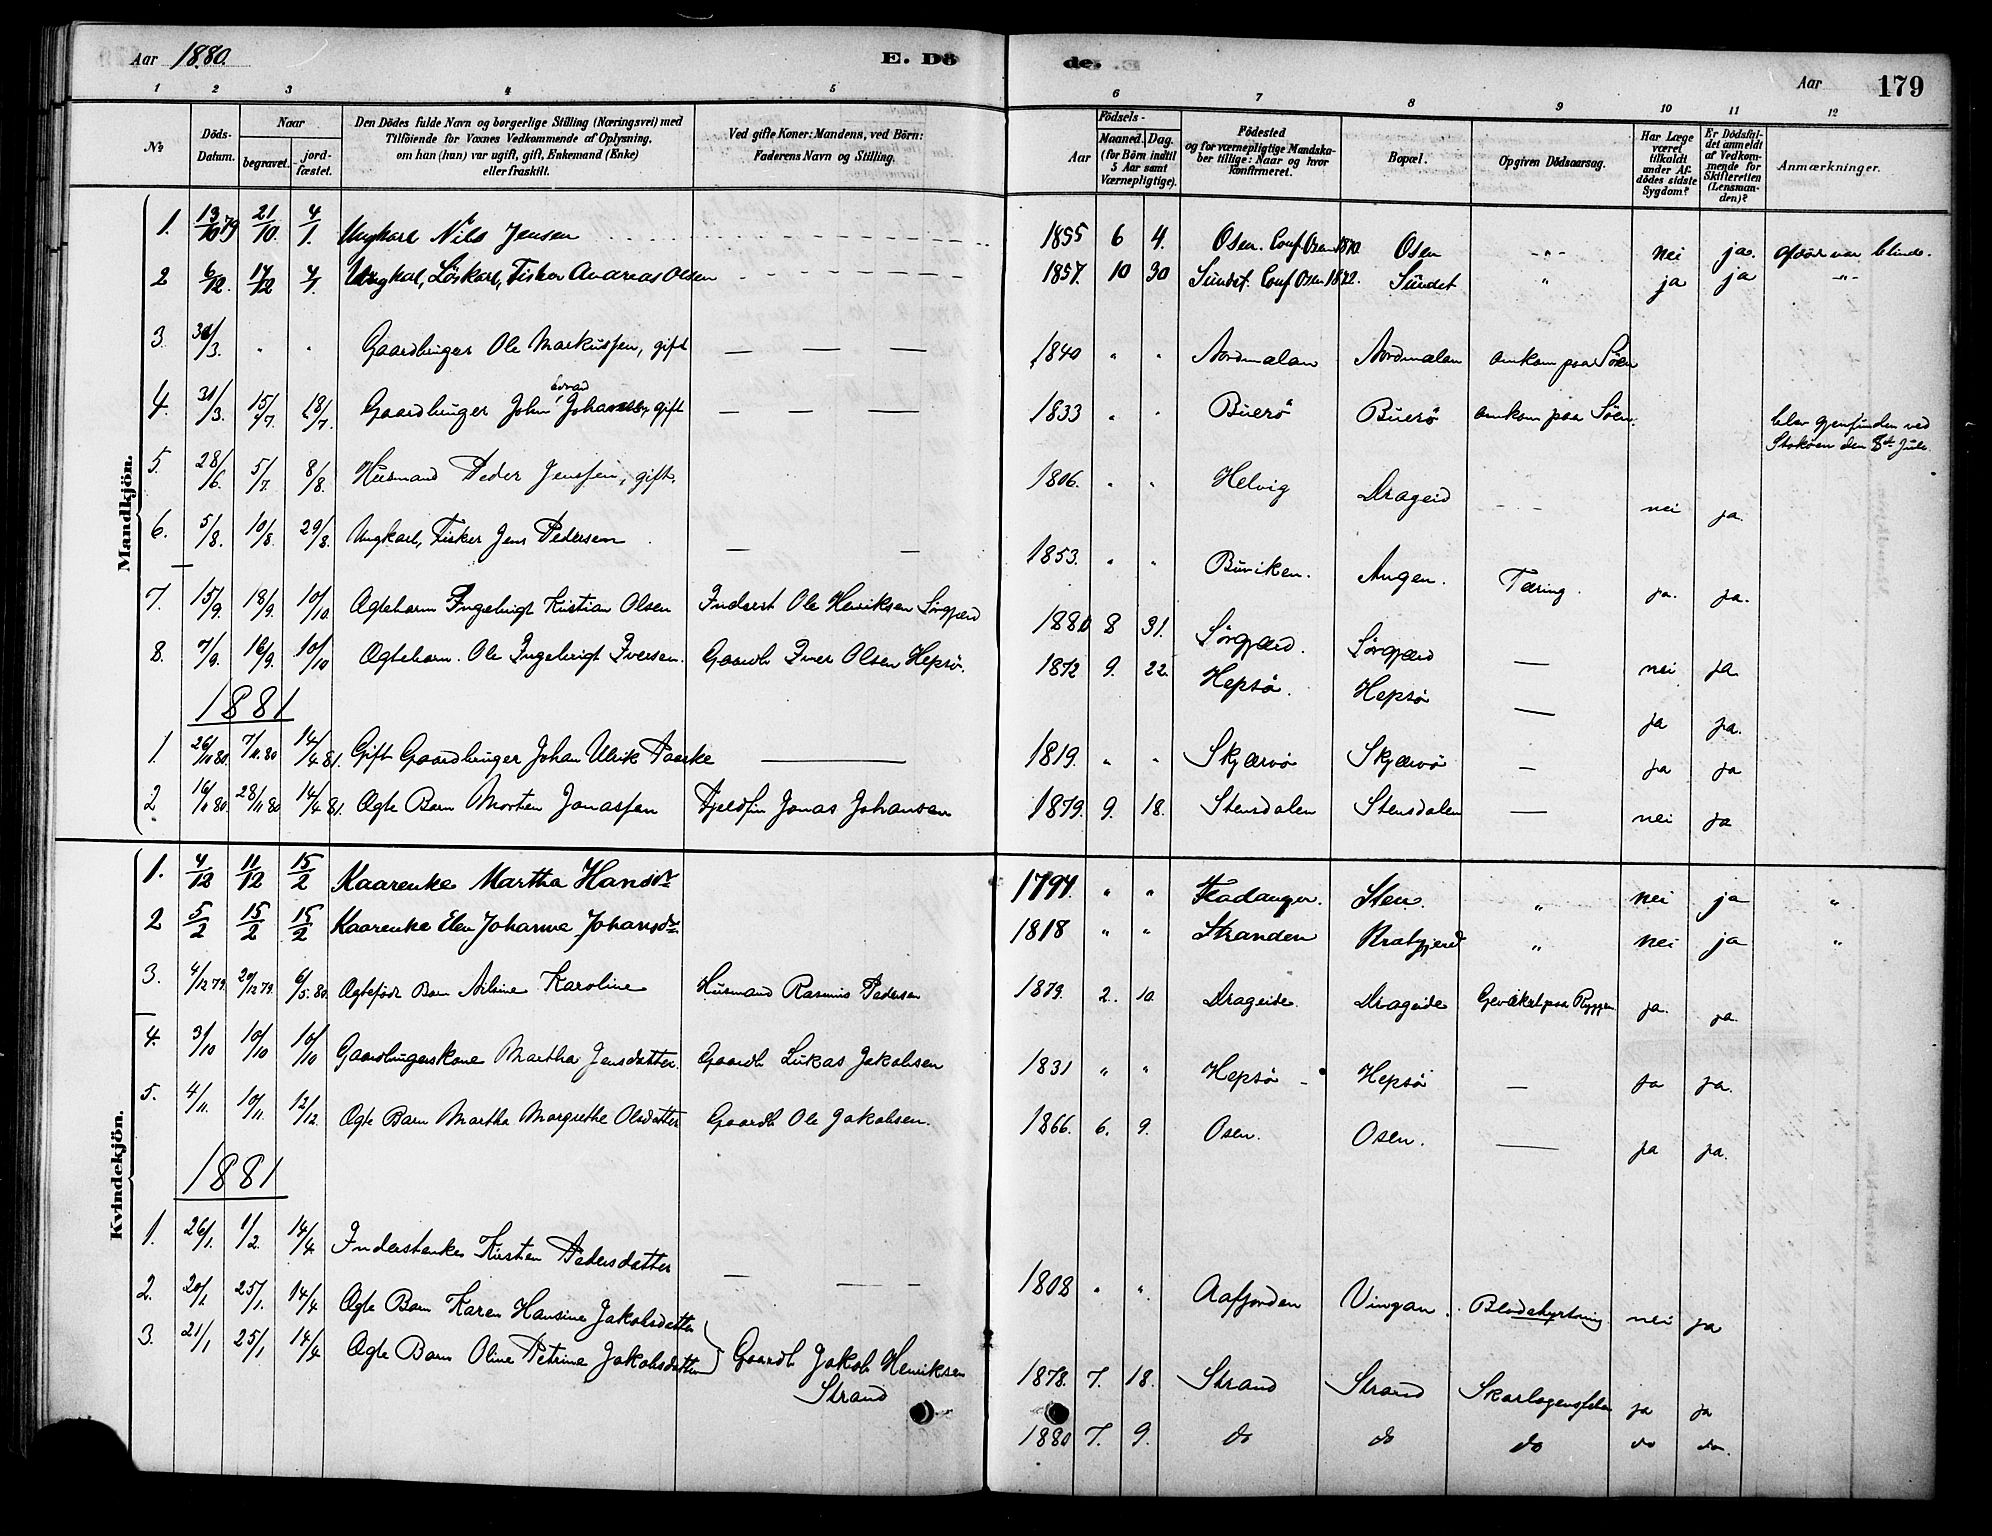 Aar 1880. E. Dö de. Aar 179
1 2 3 4 5 6 7 8 9 10 11 12
No Döds-Datum. Naar begravet. jord-fæstet. Den Dödes fulde Navn og borgerlige Stilling (Næringsvei) med Tilföiende for Voxnes Vedkommende af Oplysning, om han (hun) var ugift, gift, Enkemand (Enke) eller fraskilt. Ved gifte Koner: Mandens, ved Börn: Faderens Navn og Stilling. Födsels- Aar Maaned. Dag. (for Börn indtil 5 Aar samt Værnepligtige). Födested og for værnepligtige Mandska-ber tillige: Naar og hvor konfirmeret. Bopæl. Opgiven Dödsaarsag. Har Læge været tilkaldt under Af-dödes sidste Sygdom? Er Dödsfal-det anmeldt af Vedkom-mende for Skifteretten (Lensman-den)? Anmærkninger.
Mandkjön.
1. 13/10 79 21/10. 4/1. Ungkarl Nils Jensen 1855 6 4. Osen. Conf Osen 1870. Osen -"- nei ja.
2 6/12. 17/12 4/1. Ungkarl, Löskarl, Fisker Andreas Olsen 1857. 10 30 Sundet. Conf Osen 1872. Sundet " ja ja -"-
3. 30/3. " " Gaardbruger Ole Markussen, gift — — — 1840 " " Nordmelan Nordmelan omkom paa Söen
4. 31/3. 15/7. 18/7. Gaardbruger John Johansen, gift — — — 1833 " " Buerö Buerö omkom paa Söen. blev gjenfunden ved Stoköen den 8de Juli
5. 28/6. 5/7. 8/8. Husmand Peder Jenssen, gift. 1806. " " Helvig Drageid - - - nei ja.
6. 5/8. 10/8. 29/8. Ungkarl, Fisker Jens Pedersen — — 1853. " " Buviken. Angen. Tæring. ja. ja.
7. 15/9. 18/9. 10/10 Ægtebarn Ingebrigt Kristian Olsen Inderst Ole Henriksen Sörgjærd 1880 8 31. Sörgjærd. Sörgjærd — nei ja
8. 7/9. 16/9. 10/10 Ægtebarn. Ole Ingebrigt Iversen. Gaardb Iver Olsen Hepsö. 1872 9. 22. Hepsö. Hepsö — ja ja.
1881
1 26/10 80. 7/11. 80 14/4. 81. Gift Gaardbruger Johan Ulrik Paaske — 1819. " " Skjærvö Skjærvö — ja ja
2. 16/11 80. 28/11 80 14/4 81. Ægte Barn Morten Jonassen Jonas Johansen 1879. 9. 18. Stensdalen Stensdalen — nei ja
Kvindekjön.
1. 4/12 11/12 15/2 Kaarenke Martha Hansdr 1794. " " Sten. " nei ja "
2 5/2 15/2 15/2 Kaarenke Elen Johanna Johansdr 1818 " " Stranden " nei ja "
3. 4/12 79. 20/12 79. 6/5. 80. Ægtefödt Barn Nilsine Karoline Husmand Rasmus Pedersen 1879. 2. 10. Drageide. Drageide paa Ryggen ja. ja.
4. 3/10 10/10 10/10 Gaardbrugerskone Martha Jensdatter. Gaardb Lukas Jakobsen 1831 " " Hepsö - Hepsö — ja ja.
5. 4/11. 10/11. 12/12. Ægte Barn Martha Margrethe Olsdatter Gaardb Ole Jakobsen. 1866. 6. 9. Osen. Osen. — ja ja.
1881
1. 26/1. 1/2. 14/4. Inderstenke Kirsten Pedersdatter — — — 1808 " " Aafjorden Vingan. Blodstyrtning. nei ja
2. 20/1. 25/1. 14/4 Ægte Barn Karen Hansine Jakobsdatter 1878. 7. 18. Strand Strand Skarlagensfeber ja ja
3. 21/1 25/1 14/4 Ægte Barn Oline Petrine Jakobsdatter Gaardb Jakob Henriksen Strand 1880 7. 9. do do do do do.